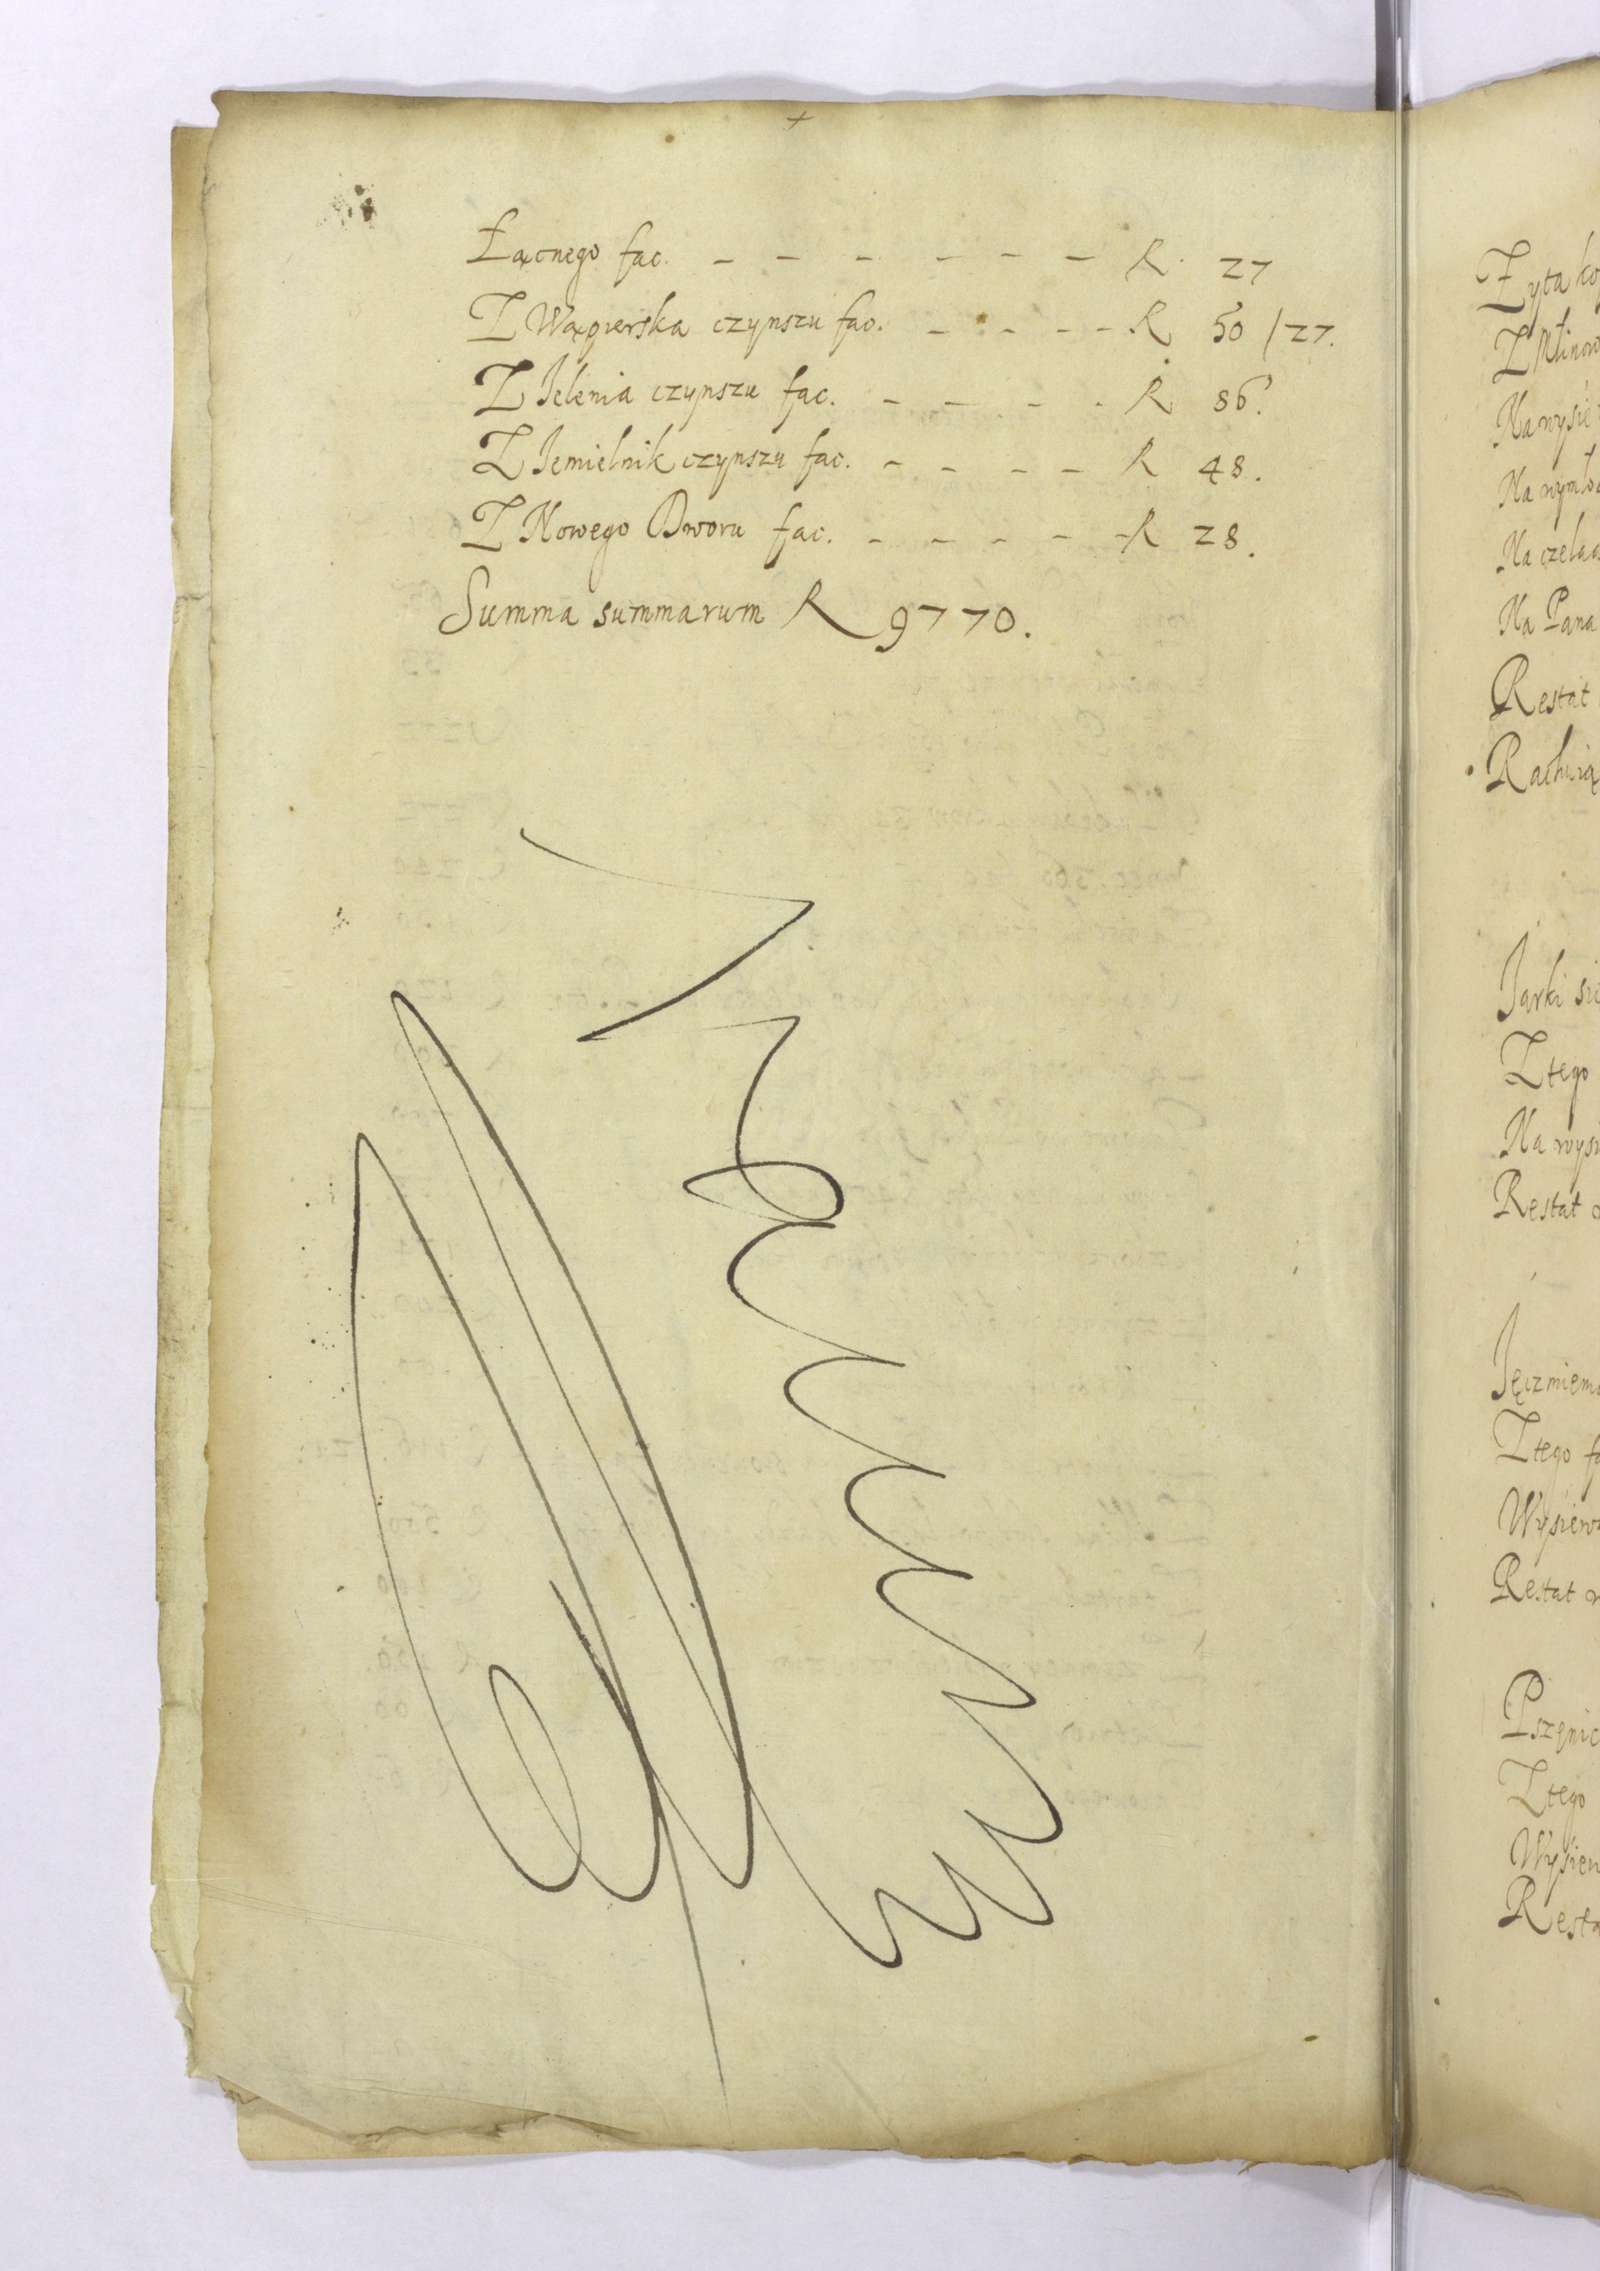 +
Łącnego fac. - - - - - - - R. 27
Z Wągierska czynszu fac. - - - - - R 50 / 27.
Z Jelenia czynszu fac. - - - - R 86.
Z Jemielnik czynszu fac. - - - - R 48.
Z Nowego Dworu fac. - - - - - R 28.
Summa summarum R 9770.
Żyta ko
Z Młinow
Na wysie
Na wymło
Na czelad
Na Pana
Restat
Rachuią
Jarki sie
Z tego
Na wysi
Restat
Jęczmiem
Z tego fa
Wysiew
Restat
Pszenic
Z tego
Wysiew
Resta